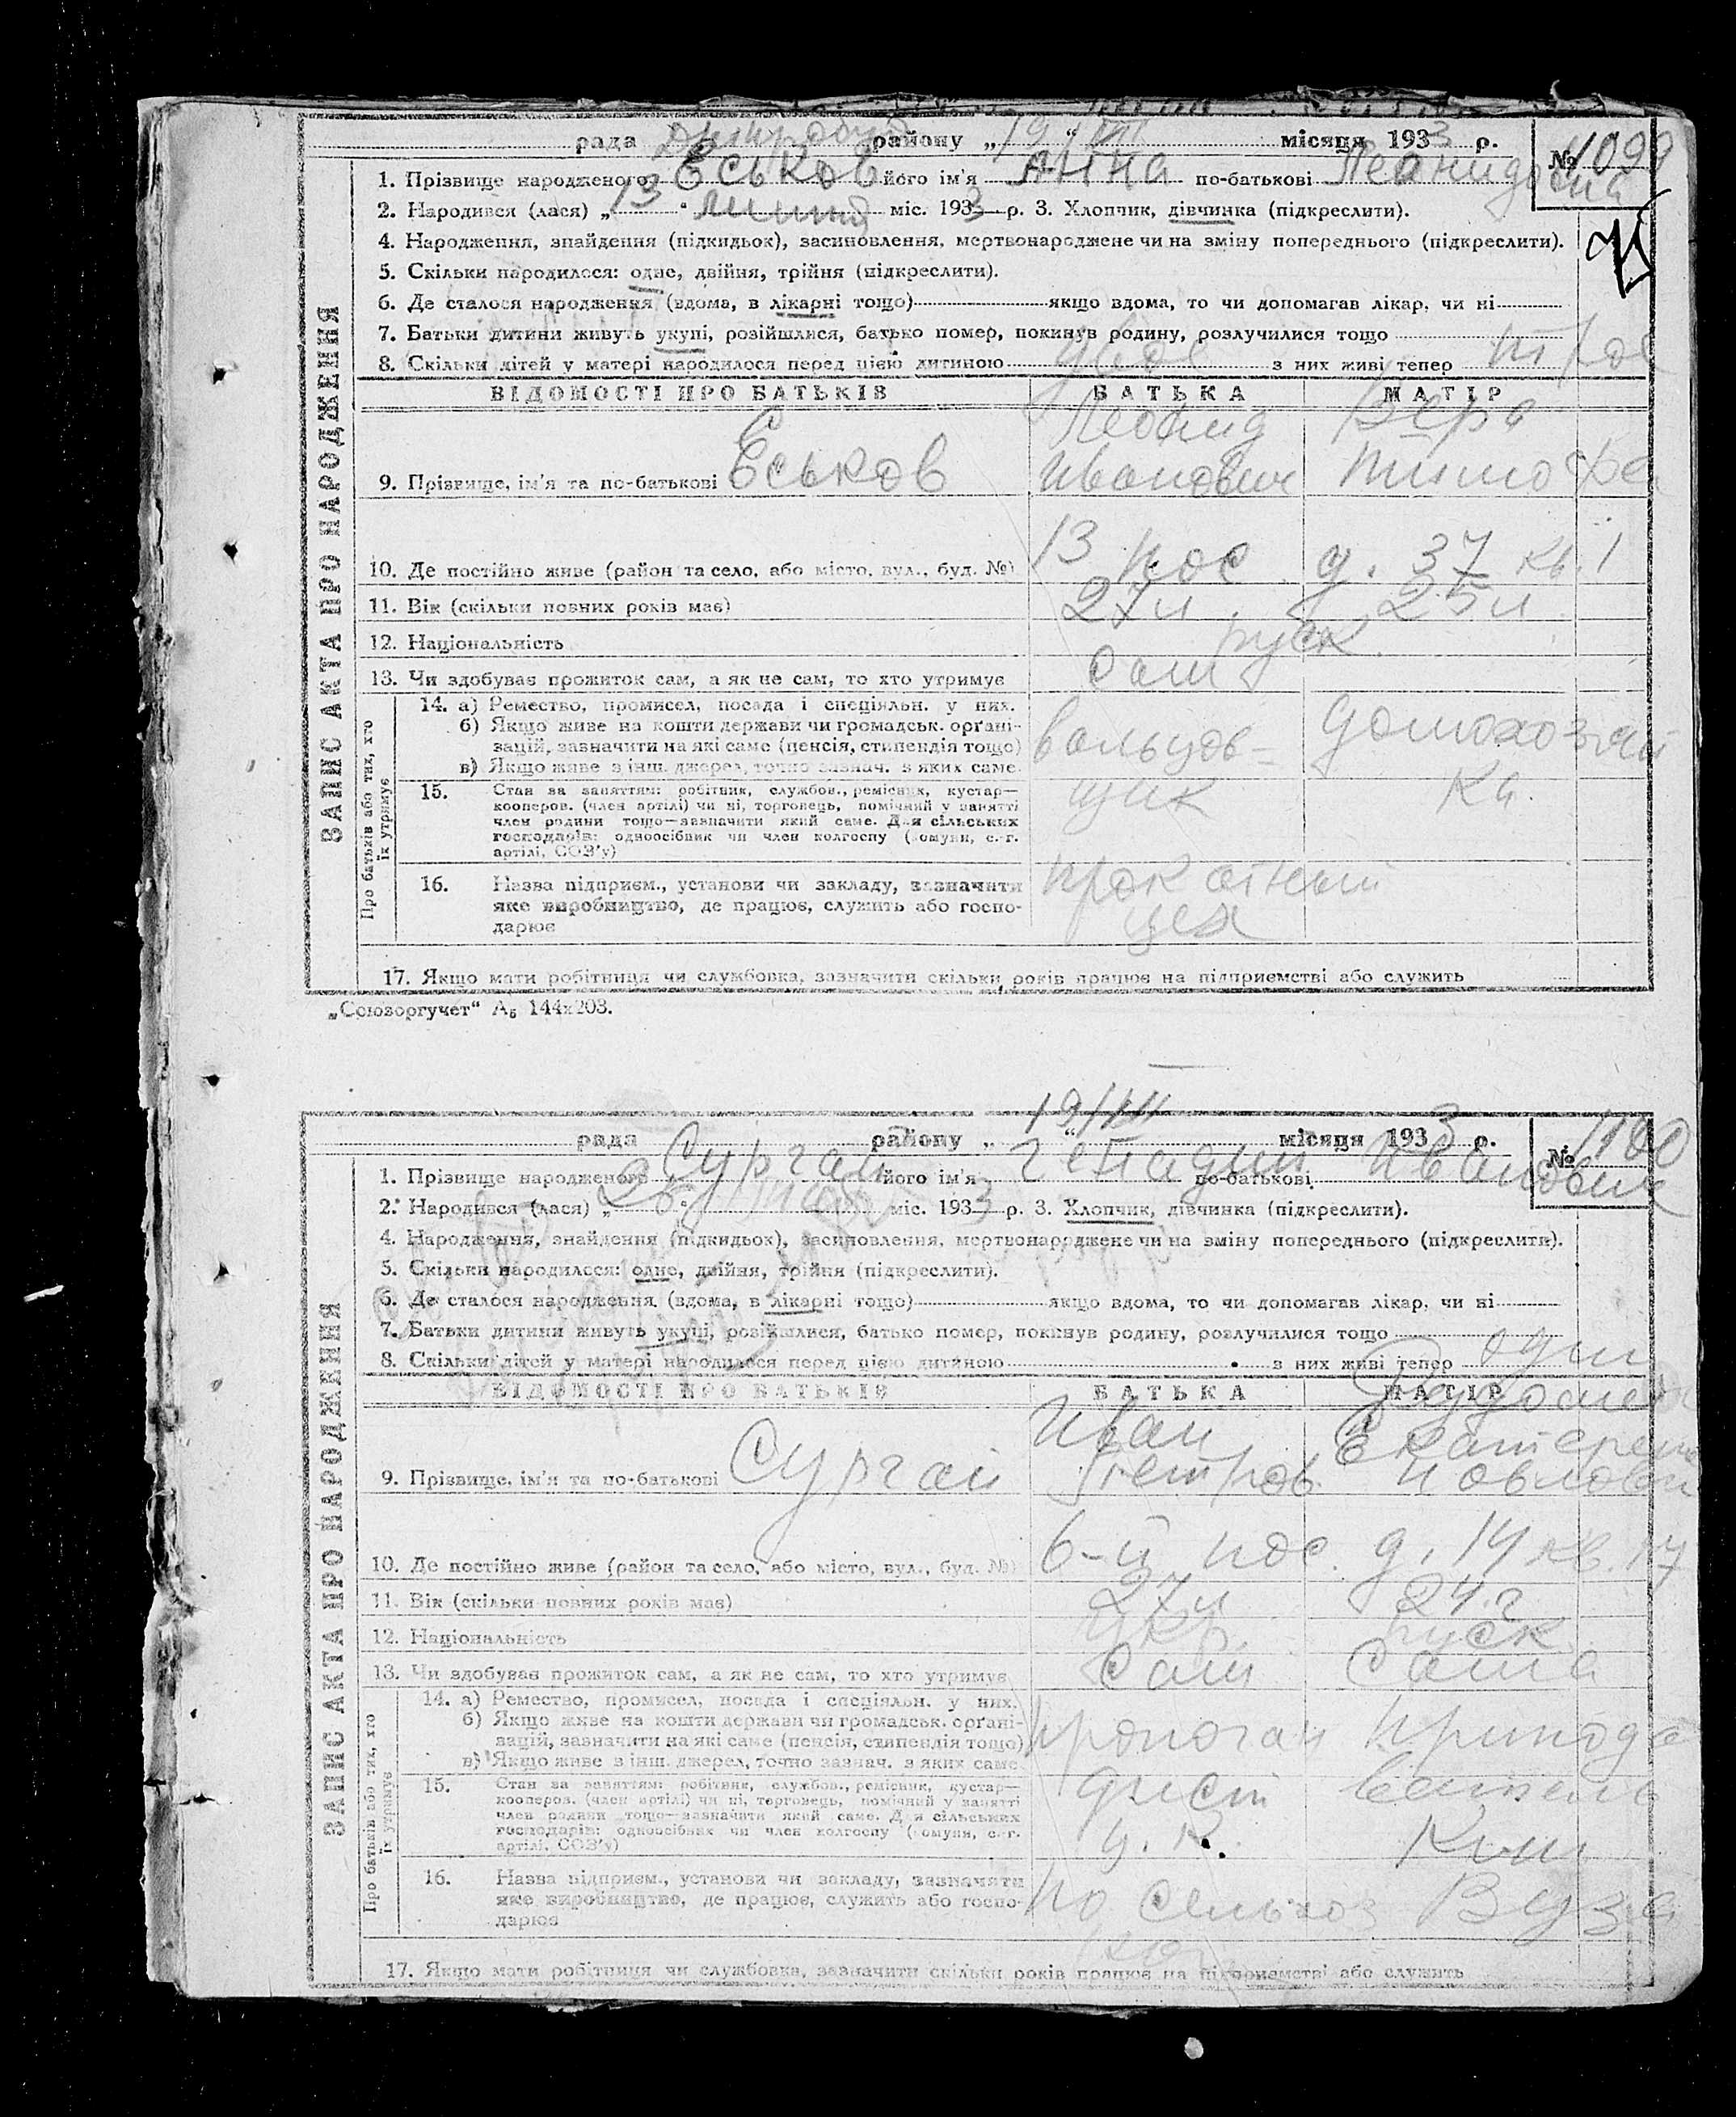 рада Дніпробуд району „19“ VII місяця 1933 р.
№ 1099
1. Прізвище народженого Еськов його ім'я Анна по-батькові Леонидовна
2. Народився (лася) „13“ липня міс. 1933 р. 3. Хлопчик, дівчинка (підкреслити).
4. Народження, знайдення (підкидьок), засиновлення, мертвонароджене чи на зміну попереднього (підкреслити).
5. Скільки народилося: одне, двійня, трійня (підкреслити).
6. Де сталося народження (вдома, в лікарні тощо) якщо вдома, то чи допомагав лікар, чи ні
7. Батьки дитини живуть укупі, розійшлися, батько помер, покинув родину, розлучилися тощо
8. Скільки дітей у матері народилося перед цією дитиною двое з них живі тепер
ЗАПИС АКТА ПРО НАРОДЖЕННЯ
ВІДОМОСТІ ПРО БАТЬКІВ БАТЬКА МАТІР
Леонид Вера
9. Прізвище, ім'я та по-батькові Еськов Иванович Тимофеи
10. Де постійно живе (район та село, або місто, вул., буд. №) 13 пос. д. 37 кв. 1
11. Вік (скільки повних років має) 27 л. 25 л.
12. Національність руск.
13. Чи здобуває прожиток сам, а як не сам, то хто утримує сам
Про батьків або тих, хто їх утримує
14. а) Ремество, промисел, посада і спеціяльн. у них.
б) Якщо живе на кошти держави чи громадськ. органі-
зацій, зазначити на які саме (пенсія, стипендія тощо) вальцов- домохозяй
в) Якщо живе з інш. джерел, точно зазнач. з яких саме
15. Стан за заняттям: робітник, службов., ремісник, кустар— щик ка.
кооперов. (член артілі) чи ні, торговець, помічний у занятті
член родини тощо—зазначити який саме. Для сільських
господарів: одноосібник чи член колгоспу (комуни, с.-г.
артілі, СОЗ'у)
16. Назва підприєм., установи чи закладу, зазначити прокатный
яке виробництво, де працює, служить або госпо- цех
дарює
17. Якщо мати робітниця чи службовка, зазначити скільки років працює на підприємстві або служить
„Союзоргучет“ А₅ 144х203.
19/VII
рада району „ “ місяця 1933 р.
№ 1100
1. Прізвище народженого Сургай його ім'я Генадий по-батькові Иванович
2. Народився (лася) „ “ міс. 1933 р. 3. Хлопчик, дівчинка (підкреслити).
4. Народження, знайдення (підкидьок), засиновлення, мертвонароджене чи на зміну попереднього (підкреслити).
5. Скільки народилося: одне, двійня, трійня (підкреслити).
6. Де сталося народження (вдома, в лікарні тощо) якщо вдома, то чи допомагав лікар, чи ні
7. Батьки дитини живуть укупі, розійшлися, батько помер, покинув родину, розлучилися тощо
8. Скільки дітей у матері народилося перед цією дитиною з них живі тепер один
ЗАПИС АКТА ПРО НАРОДЖЕННЯ
ВІДОМОСТІ ПРО БАТЬКІВ БАТЬКА МАТІР
Иван Екатерина
9. Прізвище, ім'я та по-батькові Сургай Петров. Павловн
10. Де постійно живе (район та село, або місто, вул., буд. №) 6-й пос. д. 14 кв. 17
11. Вік (скільки повних років має) 27 л 24 г
12. Національність укр. руск
13. Чи здобуває прожиток сам, а як не сам, то хто утримує сам сама
Про батьків або тих, хто їх утримує
14. а) Ремество, промисел, посада і спеціяльн. у них.
б) Якщо живе на кошти держави чи громадськ. органі-
зацій, зазначити на які саме (пенсія, стипендія тощо) пропоган припода
в) Якщо живе з інш. джерел, точно зазнач. з яких саме
15. Стан за заняттям: робітник, службов., ремісник, кустар— дист ватель
кооперов. (член артілі) чи ні, торговець, помічний у занятті
член родини тощо—зазначити який саме. Для сільських
господарів: одноосібник чи член колгоспу (комуни, с.-г.
артілі, СОЗ'у)
16. Назва підприєм., установи чи закладу, зазначити
яке виробництво, де працює, служить або госпо- по сельхоз Вуза
дарює
17. Якщо мати робітниця чи службовка, зазначити скільки років працює на підприємстві або служить